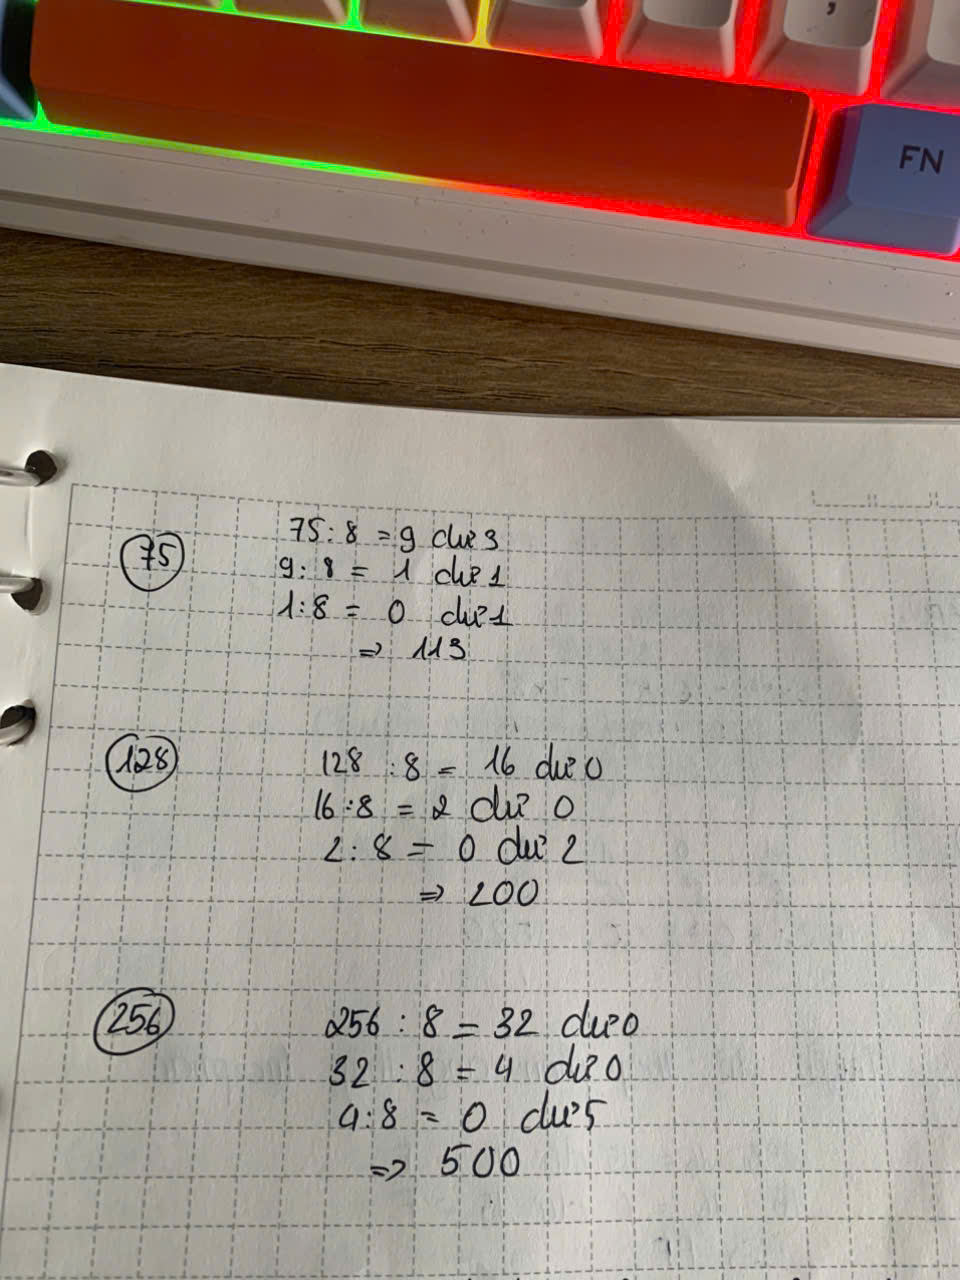 ,
FN
75
75 : 8 = 9 dư 3
9 : 8 = 1 dư 1
1 : 8 = 0 dư 1
⇒ 113
128
128 : 8 = 16 dư 0
16 : 8 = 2 dư 0
2 : 8 = 0 dư 2
⇒ 200
256
256 : 8 = 32 dư 0
32 : 8 = 4 dư 0
4 : 8 = 0 dư 5
⇒ 500